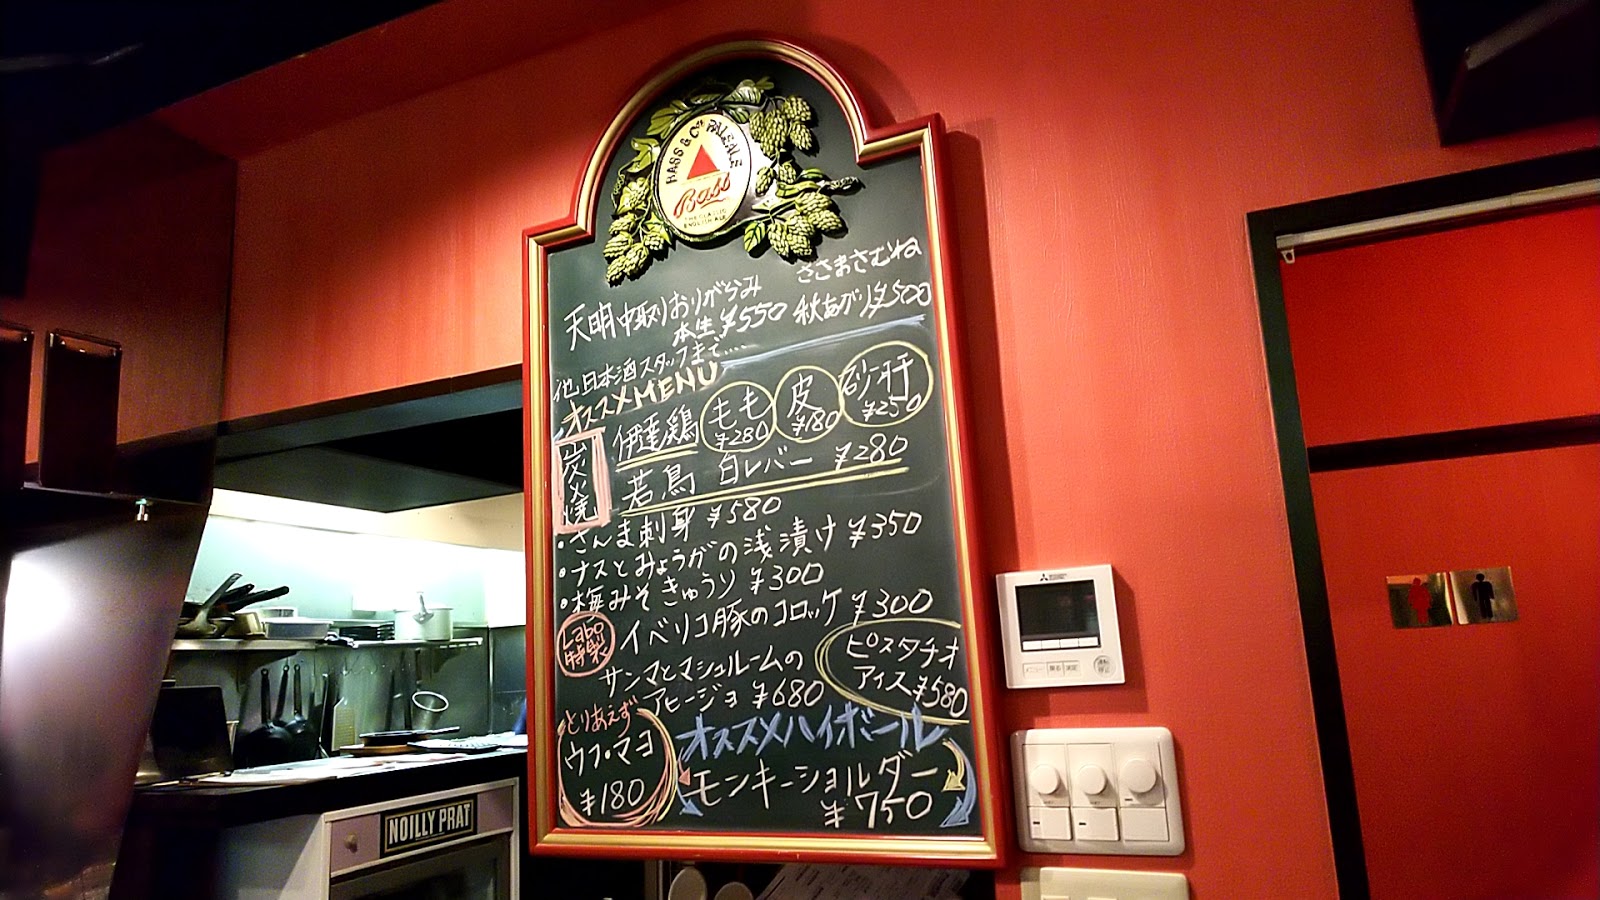 BASS & Co's PALE ALE
Bass
THE CLASSIC
ENGLISH ALE
天明中取りおりがらみ
本生 ¥550
ささまさむね
秋あがり ¥500
他日本酒スタッフまで....
オススメMENU
炭火焼
伊達鶏 もも ¥280 皮 ¥180 砂肝 ¥250
若鳥 白レバー ¥280
・さんま刺身 ¥580
・ナスとみょうがの浅漬け ¥350
・梅みそきゅうり ¥300
Labo特製
イベリコ豚のコロッケ ¥300
サンマとマシュルームの
アヒージョ ¥680
ピスタチオ
アイス ¥580
とりあえず
ウフ・マヨ
¥180
オススメハイボール
モンキーショルダー
¥750
NOILLY PRAT